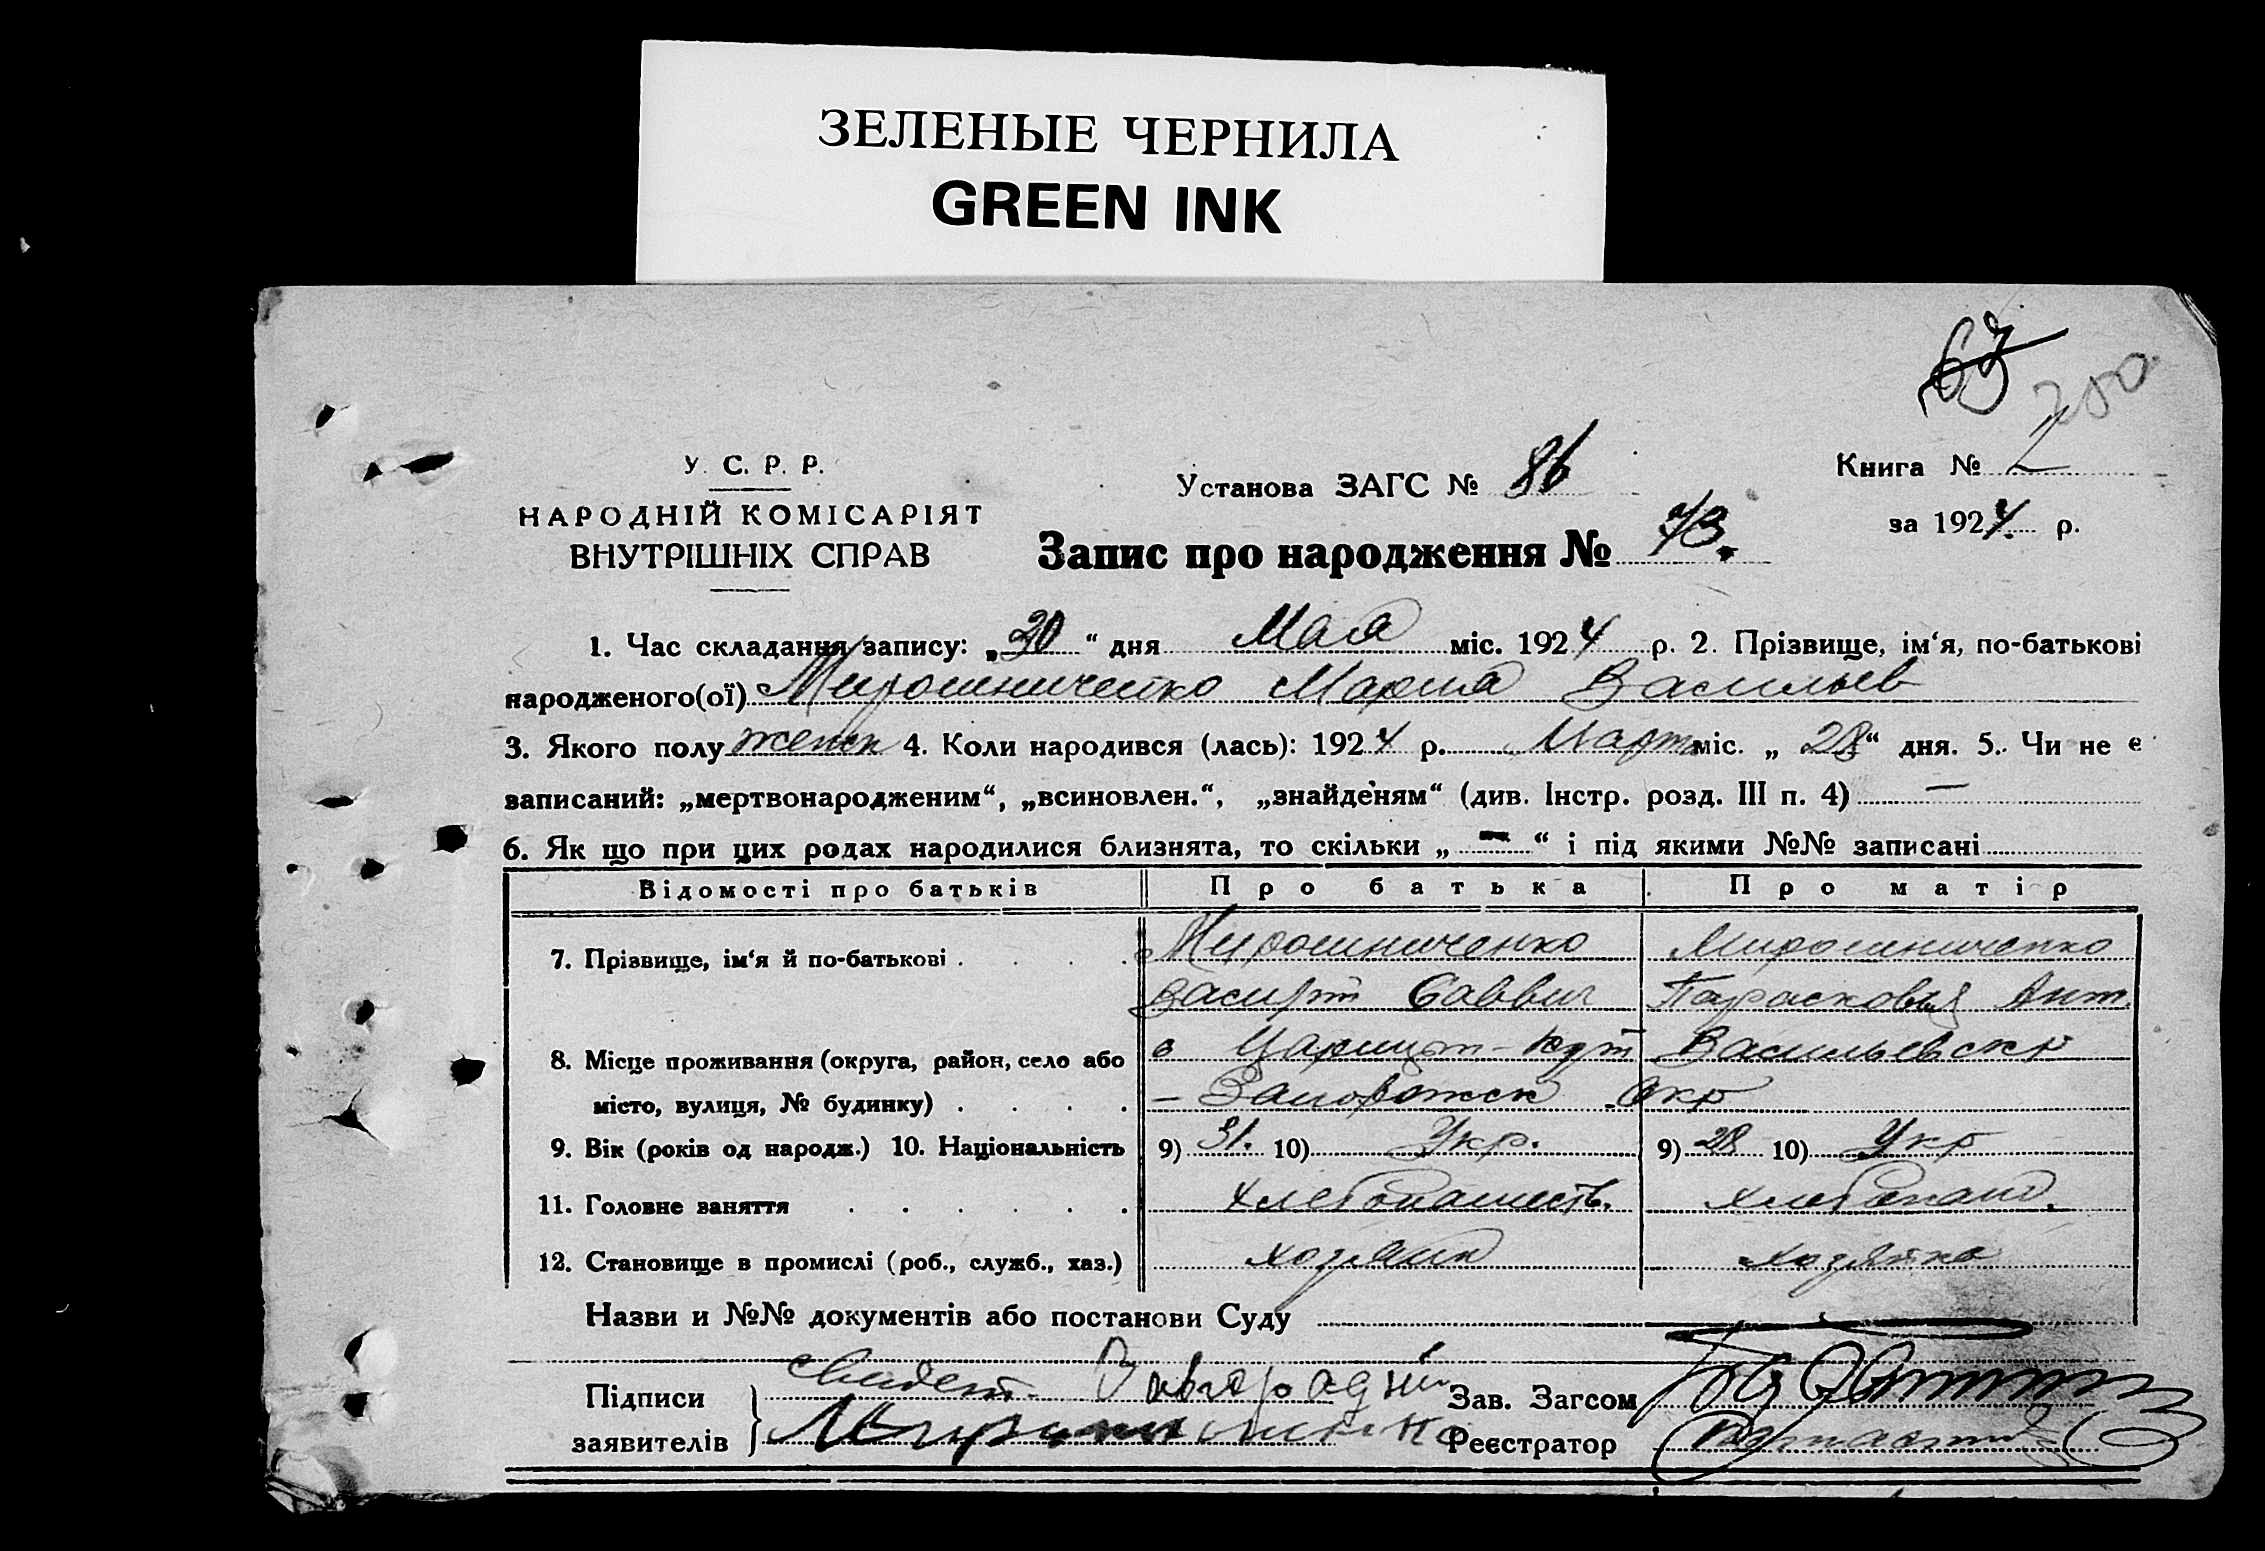 ЗЕЛЕНЫЕ ЧЕРНИЛА
GREEN INK
63
200
У. С. Р. Р.
НАРОДНІЙ КОМІСАРІЯТ
ВНУТРІШНІХ СПРАВ
Установа ЗАГС № 86
Книга № 2
за 1924 р.
Запис про народження № 73.
1. Час складання запису: „30“ дня Мая міс. 1924 р. 2. Прізвище, ім‘я, по-батькові
народженого(ої) Мирошниченко Мария Васильев
3. Якого полу женск 4. Коли народився (лась): 1924 р. Марта міс. „28“ дня. 5. Чи не є
записаний: „мертвонародженим“, „всиновлен.“, „знайденям“ (див. Інстр. розд. III п. 4) —
6. Як що при цих родах народилися близнята, то скільки „ — “ і під якими №№ записані
Відомості про батьків Про батька Про матір
7. Прізвище, ім‘я й по-батькові . . . . Мирошниченко Мирошниченко
Василий Саввич Парасковия Ант.
8. Місце проживання (округа, район, село або с Царицын-Кут Васильевск р
місто, вулиця, № будинку) . . . . — Запорожск окр
9. Вік (років од народж.) 10. Національність 9) 31. 10) Укр. 9) 28 10) Укр
11. Головне заняття . . . . . . Хлебопашеств. хлебопаш.
12. Становище в промислі (роб., служб., хаз.) хозяин хозяйка
Назви и №№ документів або постанови Суду
Підписи Свидет. Зав. Загсом
заявителів Мирошниченко Реєстратор